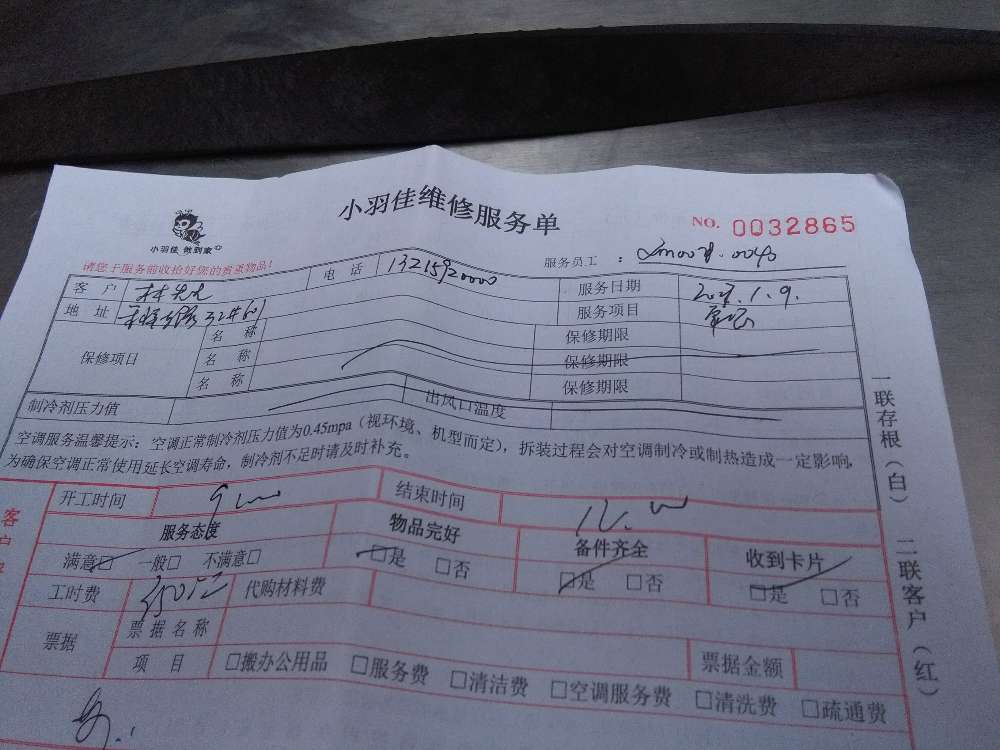 小羽佳维修服务单
NO. 0032865
小羽佳 做到家
请您于服务前收拾好您的贵重物品!
服务员工：
客户 林先生 电话 13215920000 服务日期 1.9.
地址 32#601 服务项目
保修项目 名称 保修期限
名称 保修期限
名称 保修期限
制冷剂压力值 出风口温度
空调服务温馨提示：空调正常制冷剂压力值为0.45mpa（视环境、机型而定），拆装过程会对空调制冷或制热造成一定影响，
为确保空调正常使用延长空调寿命，制冷剂不足时请及时补充。
一联存根（白） 二联客户（红）
客户
开工时间 结束时间
服务态度 物品完好 备件齐全 收到卡片
满意□ 一般□ 不满意□ □是 □否 □是 □否 □是 □否
工时费 350元 代购材料费
票据 票据名称
项目 □搬办公用品 □服务费 □清洁费 □空调服务费 □清洗费 □疏通费
票据金额